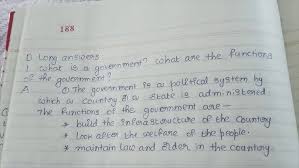 188
D Long answers
1 What is a government? What are the functions
of the government?
A ① The government is a political system by
which a country or a state is administered.
The functions of the government are —
* build the infrastructure of the country
* look after the welfare of the people.
* maintain law and order in the country.